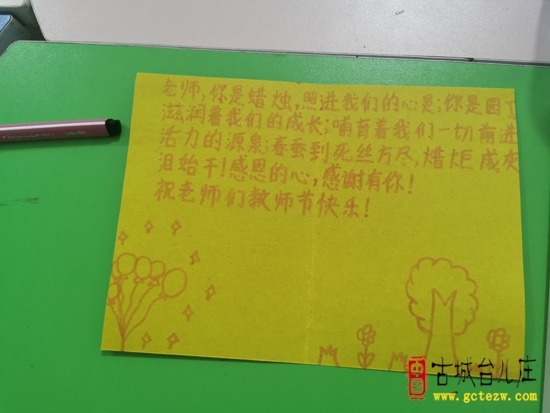 老师，你是蜡烛，照进我们的心灵；你是园丁
滋润着我们的成长；哺育着我们一切前进
活力的源泉；春蚕到死丝方尽，蜡炬成灰
泪始干！感恩的心，感谢有你！
祝老师们教师节快乐！
古城台儿庄
www.gctezw.com